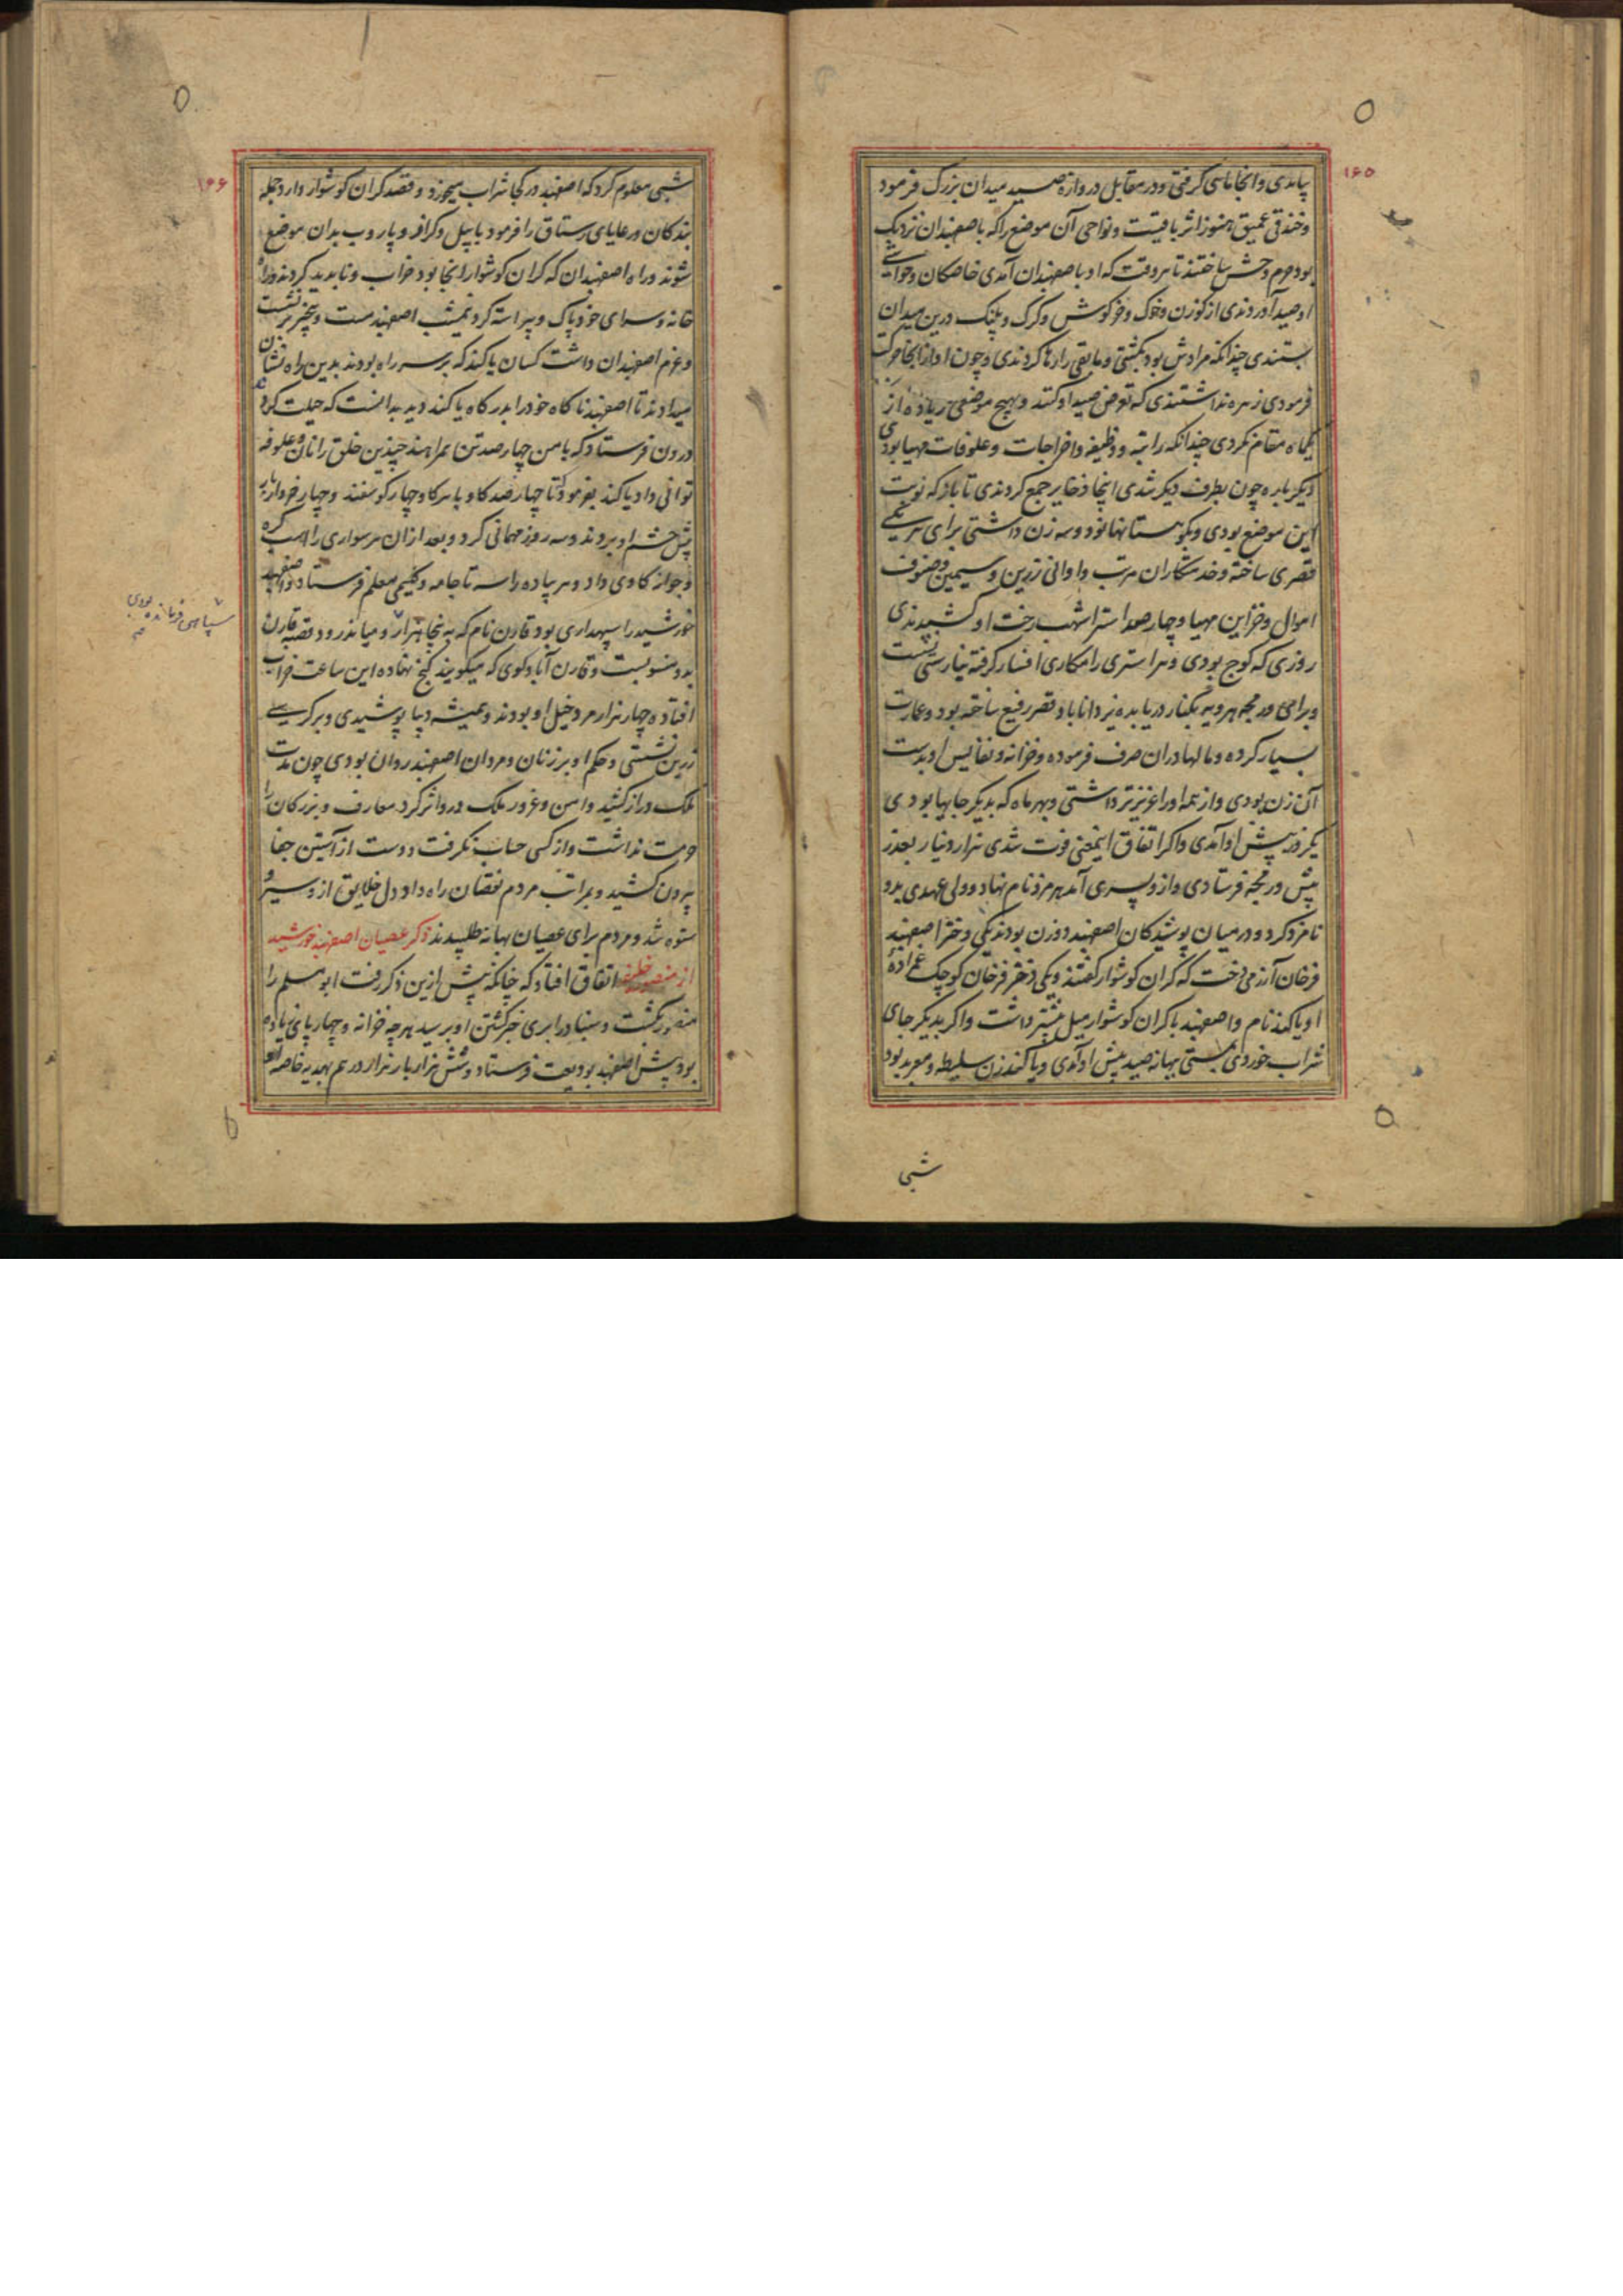 ۱۶۵
پیاندی و انجا ماسی کرفتی و در مقابل دروازه صید میدان بزرک فرمود
و خندقی عمیق هنوز اثر باقیست و نواحی آن موضع را که باصفهبدان نزدیک
بود حرم وحش ساختند تا هر وقت که او باصفهبدان آمدی خاصکان و حواشی
او صید آوردندی از کوزن و خوک و خرکوش و کرک و پلنک درین میدان
ببستندی چندانکه مرادش بود بکشتی و مابقی را رها کردندی و چون او از انجا حرکت
فرمودی زهره نداشتندی که تعرض صید او کنند و بهیچ موضعی زیاده از
یکماه مقام نکردی چندانکه راتبه و وظیفه و اخراجات و علوفات مهیا بودی
دیکر باره چون بطرف دیکر شدی اینجا ذخایر جمع کردندی تا باز که نوبت
این موضع بودی و بکوهستانها نود و سه زن داشتی برای هر یکی
قصری ساخته و خدمتکاران مرتب و اوانی زرین و سیمین و صنوف
اموال و خزاین مهیا و چهار صد استر اشهب رخت او کشیدندی
روزی که کوچ بودی و هر استری را مکاری افسار کرفته نیارستی نشست
و برای ورمجه هرویه بکنار دریا بده یزداناباد قصر رفیع ساخته بود و عمارت
بسیار کرده و مالها دران صرف فرموده و خزانه و نفایس او بدست
آن زن بودی و از همه او را عزیزتر داشتی و بهر ماه که بدیکر جایها بودی
یکروز پیش او آمدی و اکر اتفاق اینمعنی فوت شدی هزار دینار بعذر
پیش ورمجه فرستادی و ازو پسری آمد هرمز نام نهاد و ولی عهدی بدو
نامزد کرد و در میان پوشیدکان اصفهبد دو زن بودند یکی دختر اصفهبد
فرخان آرزمی دخت که کران کوشوار کفتند و یکی دختر فرخان کوچک عم زاده
او یاکند نام و اصفهبد با کران کوشوار میل بیشتر داشت و اکر بدیکر جای
شراب خوردی بمستی ببهانه صید پیش او آمدی و یاکند زن سلیطه و معربد بود
شبی
۱۶۶
شبی معلوم کرد که اصفهبد در کجا شراب میخورد و قصد کران کوشوار دارد جمله
بندکان و رعایای رستاق را فرمود با بیل و کراف و پاروب بدان موضع
شوند و راه اصفهبدان که کران کوشوار انجا بود خراب و ناپدید کردند و راه
خانه و سرای خود پاک و پیراسته کرد نیمشب اصفهبد مست و بیخبر بر نشست
و عزم اصفهبدان داشت کسان یاکند که بر سر راه بودند بدین راه نشان
میدادند تا اصفهبد ناکاه خود را بدرکاه یاکند دید بدانست که حیلت کرد
درون فرستاد که با من چهار صد تن همراهند چندین خلق را نان و علوفه
توانی داد یاکند بفرمود تا چهار صد کاو با هر کاو چهار کوسفند و چهار خروار بار
پیش حشم او بردند و سه روز مهمانی کرد و بعد ازان هر سواری را اسب کره
و جواز کاوی داد و هر پیاده را سه تا جامه و کلیمی معلم فرستاد و اصفهبد
خورشید را سپهداری بود قارن نام که به پنجاه هزار و میاندرود قصبه قارن
بدو منسوبست و قارن آباد و کوی که میکویند کنج نهاده این ساعت خراب
افتاده چهار هزار مرد خیل او بودند و همیشه دیبا پوشیدی و بر کرسی
زرین نشستی و حکم او بر زنان و مردان اصفهبد روان بودی چون مدت
ملک دراز کشید و امن و غرور ملک درو اثر کرد معارف و بزرکان را
حرمت نداشت و از کسی حساب نکرفت و دست از آستین جفا
بیرون کشید و بمراتب مردم نقصان راه داد دل خلایق ازو سیر و
ستوه شد و مردم برای عصیان بهانه طلبیدند ذکر عصیان اصفهبد خورشید
از منصور خلیفه اتفاق افتاد که چنانکه پیش ازین ذکر رفت ابو مسلم را
منصور بکشت و سنباد را بری خبر کشتن او برسید هر چه خزانه و چهارپای زیاده
بود پیش اصفهبد بودیعت فرستاد و شش هزار بار هزار درم بهدیه خاصه او